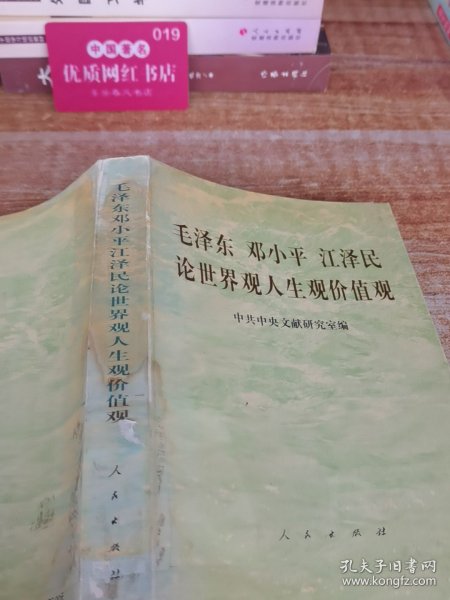 中国著名
019
优质网红书店
人民出版社
毛泽东邓小平江泽民论世界观人生观价值观
人民出版社
毛泽东 邓小平 江泽民
论世界观人生观价值观
中共中央文献研究室编
人民出版社
孔夫子旧书网
www.kongfz.com